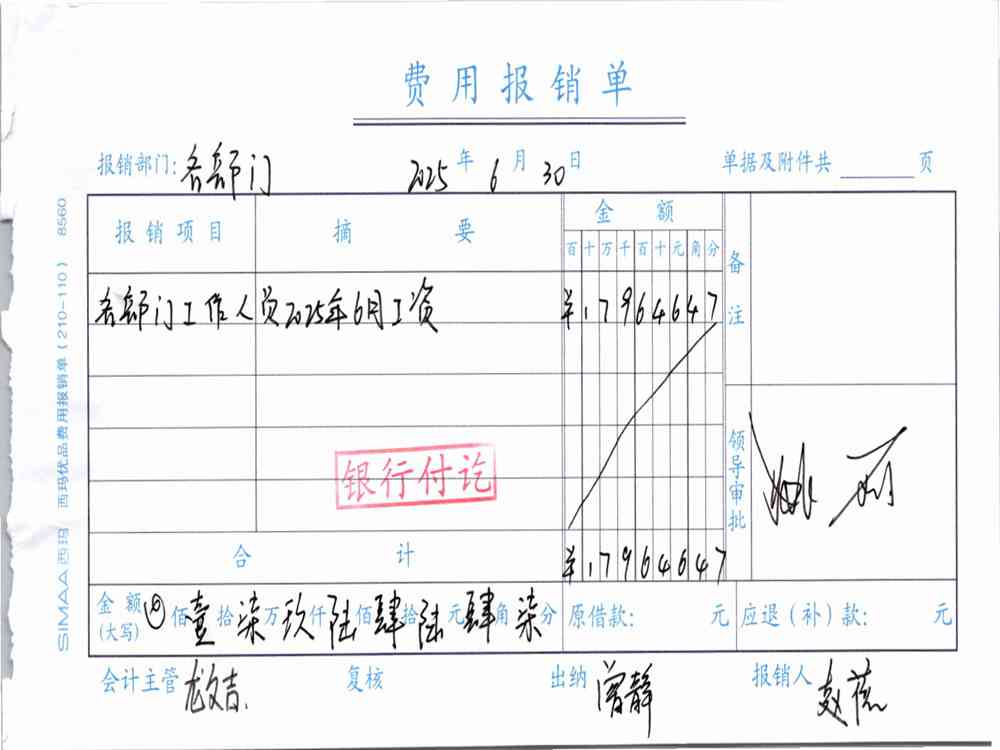 费用报销单
报销部门:各部门 2025年6月30日 单据及附件共 页
报销项目 摘要 金额 备注
百十万千百十元角分
各部门工作人员2025年6月工资 ¥17964647
银行付讫
领导审批 姚丽
合计 ¥17964647
金额(大写) 佰壹拾柒万玖仟陆佰肆拾陆元肆角柒分 原借款: 元 应退(补)款: 元
会计主管 龙文吉 复核 出纳 曾静 报销人 赵蓓
SIMAA西玛 西玛优品费用报销单(210-110) 8560